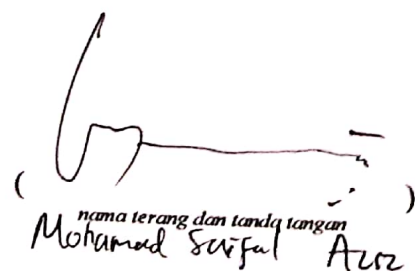 ( )
nama terang dan tanda tangan
Mohamad Saiful Aziz